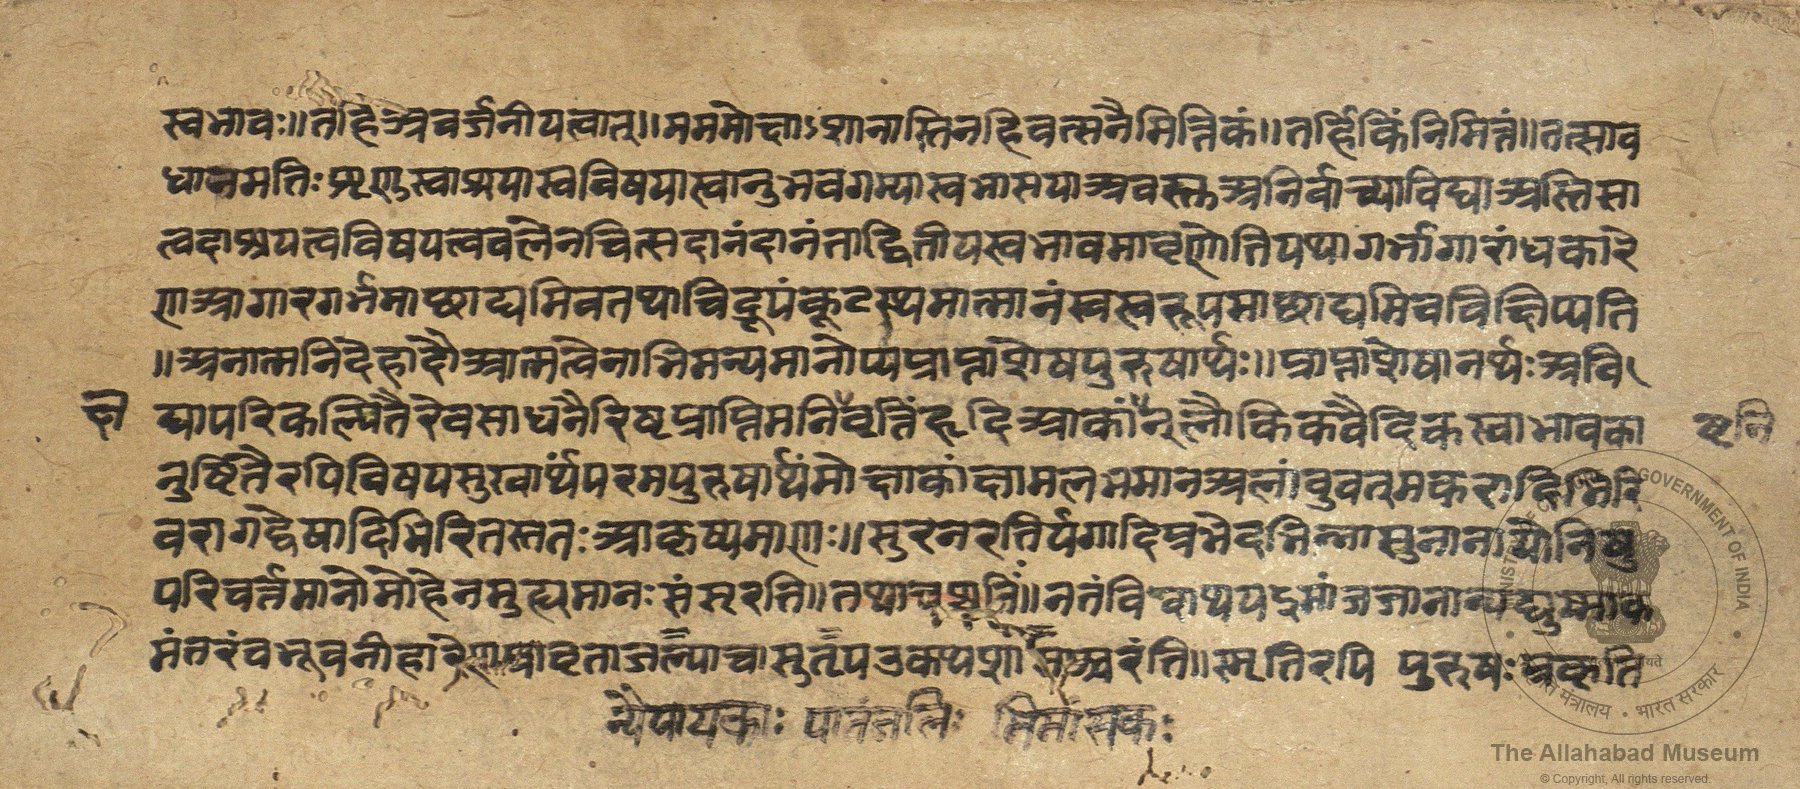 स्वभावः॥तर्हिअवर्जनीयत्वात्॥मममोक्षाऽशानास्तिनहिवत्सनैमित्तिकं॥तर्हिकिंनिमित्तं॥तत्साव
धानमतिः शृणुस्वाश्रयास्वविषयास्वानुभवगम्यास्वभासयाअवस्तुअनिर्वाच्याविद्याअस्तिसा
त्वदाश्रयत्वविषयत्वबलेनचित्सदानंदानंताद्वितीयस्वभावमावृणोतियथागर्भागारांधकारे
णआगारगर्भमाच्छाद्यमिवतथाचिद्रूपंकूटस्थमात्मानंस्वस्वरूपमाच्छाद्यमिवविक्षिप्यति
॥अनात्मनिदेहादौआत्मत्वेनाभिमन्यमानोप्यप्राप्ताशेषपुरुषार्थः॥प्राप्ताशेषानर्थःअवि
द्यापरिकल्पितैरेवसाधनैरिष्टप्राप्तिमनिवृत्तिंहृदिआकांन्लौकिकवैदिकस्वाभावका
क्ष
ष्टनि
नुष्ठितैरपिविषयसुखार्थंपरमपुरुषार्थंमोक्षाकांक्षामलभमानअलांबुवत्मकरादिभिरि
वरागद्वेषादिभिरितस्ततःआकृष्यमाणः॥सुरनरतिर्यगादिप्रभेदभिन्नासुनानायोनिषु
परिवर्त्तमानोमोहेनमुह्यमानःसंसरति॥तथाचश्रुतिः॥नतंविदाथयइमांजजानान्यद्युष्माक
मंतरंबभूवनीहारेणप्रावृताजल्प्याचासुतृपउक्थशासश्चरंति॥स्मृतिरपि पुरुषःप्रकृति
न्यैयायकाः पातंजलिः मिमांसकः
The Allahabad Museum
© Copyright, All rights reserved.